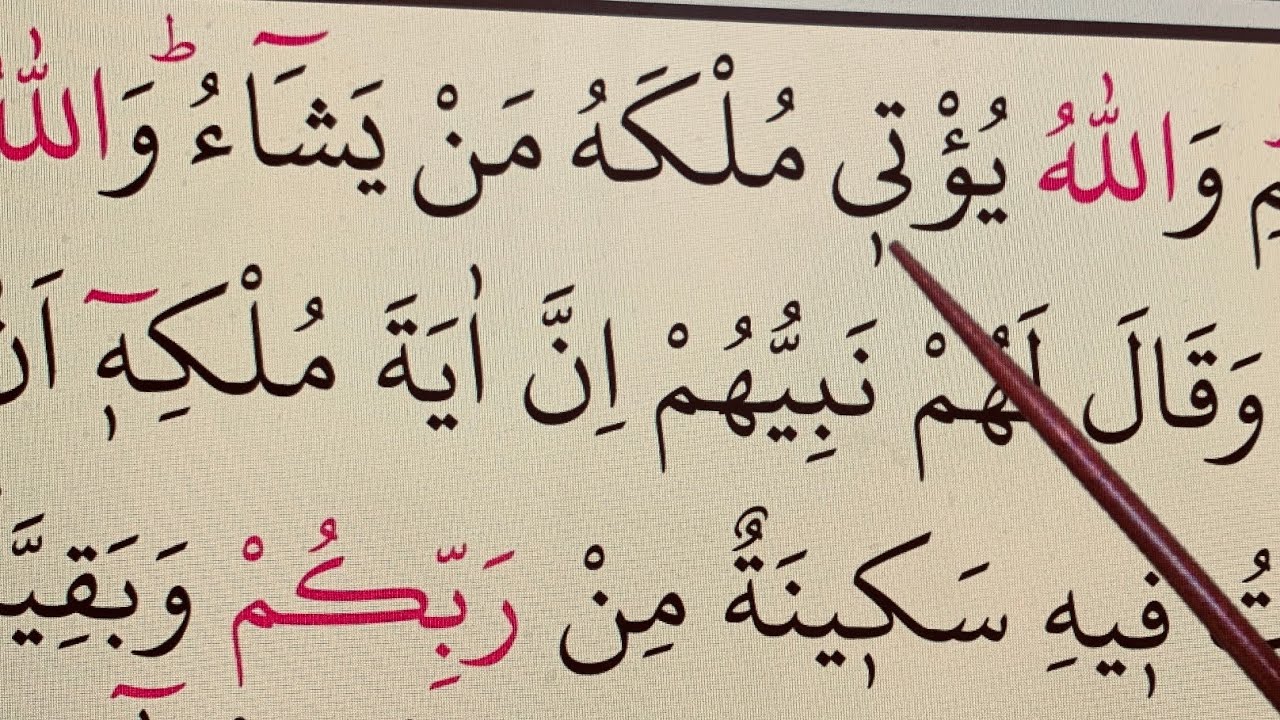 وَاللّٰهُ يُؤْتٖى مُلْكَهُ مَنْ يَشَٓاءُۜ وَاللّٰهُ
وَقَالَ لَهُمْ نَبِيُّهُمْ اِنَّ اٰيَةَ مُلْكِهٖٓ
فٖيهِ سَكٖينَةٌ مِنْ رَبِّكُمْ